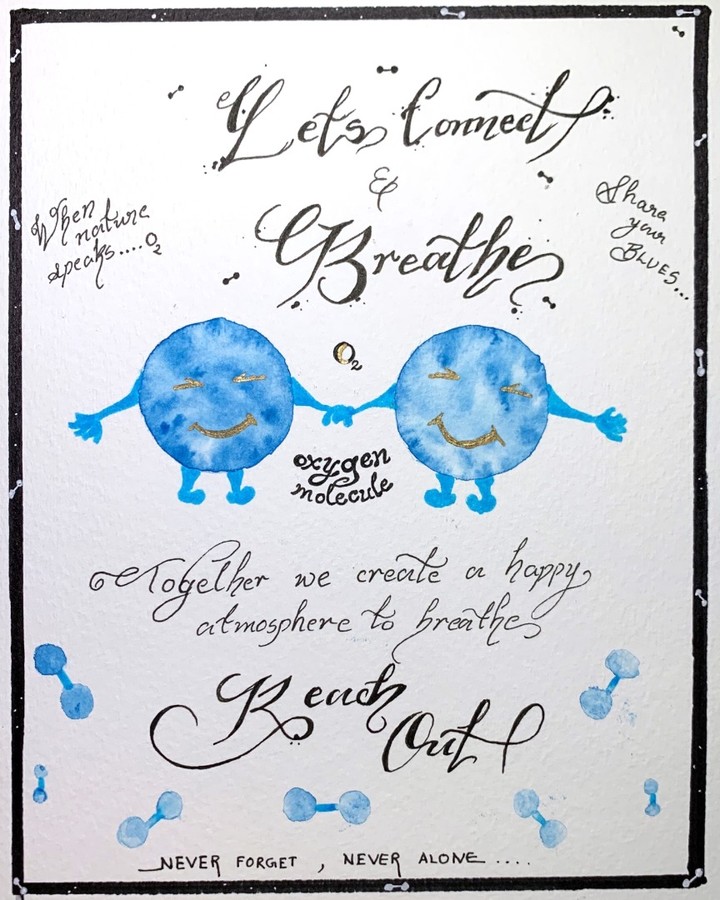 Lets Connect
&
Breathe
When
nature
speaks....O₂
Share
your
BLUES...
O₂
oxygen
molecule
Together we create a happy
atmosphere to breathe
Reach
Out
NEVER FORGET , NEVER ALONE ....